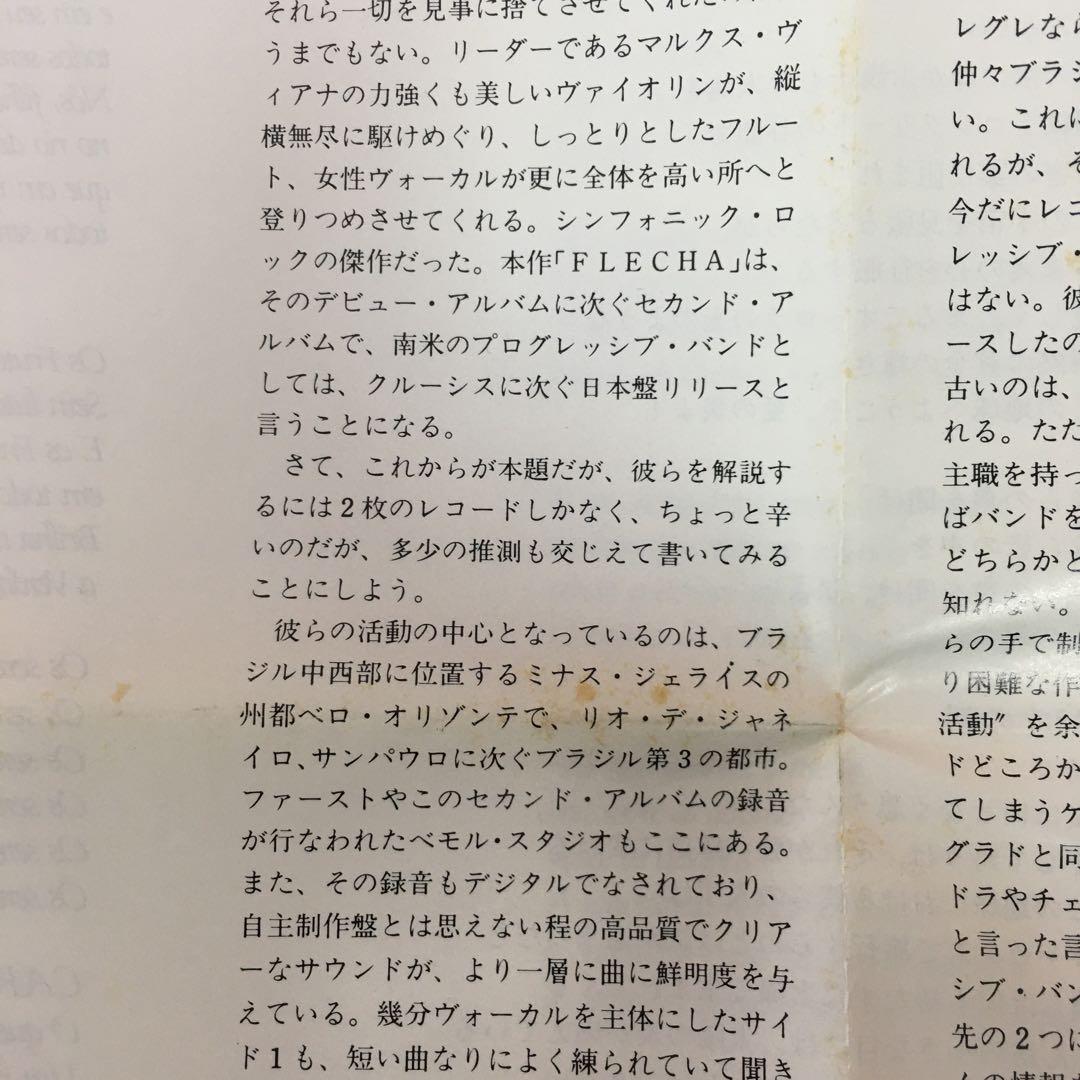 それら一切を見事に捨てさせてくれた
うまでもない。リーダーであるマルクス・ヴ
ィアナの力強くも美しいヴァイオリンが、縦
横無尽に駆けめぐり、しっとりとしたフルー
ト、女性ヴォーカルが更に全体を高い所へと
登りつめさせてくれる。シンフォニック・ロ
ックの傑作だった。本作「FLECHA」は、
そのデビュー・アルバムに次ぐセカンド・ア
ルバムで、南米のプログレッシブ・バンドと
しては、クルーシスに次ぐ日本盤リリースと
言うことになる。
さて、これからが本題だが、彼らを解説す
るには2枚のレコードしかなく、ちょっと辛
いのだが、多少の推測も交じえて書いてみる
ことにしよう。
彼らの活動の中心となっているのは、ブラ
ジル中西部に位置するミナス・ジェライスの
州都ベロ・オリゾンテで、リオ・デ・ジャネ
イロ、サンパウロに次ぐブラジル第3の都市。
ファーストやこのセカンド・アルバムの録音
が行なわれたベモル・スタジオもここにある。
また、その録音もデジタルでなされており、
自主制作盤とは思えない程の高品質でクリア
ーなサウンドが、より一層に曲に鮮明度を与
えている。幾分ヴォーカルを主体にしたサイ
ド1も、短い曲なりによく練られていて聞き
レグレなら
仲々ブラジ
い。これに
れるが、そ
今だにレコ
レッシブ・
はない。彼
ースしたの
古いのは、
れる。ただ
主職を持っ
ばバンドを
どちらかと
知れない。
らの手で制
り困難な作
活動”を余
ドどころか
てしまうケ
グラドと同
ドラやチェ
と言った言
シブ・バン
先の2つに